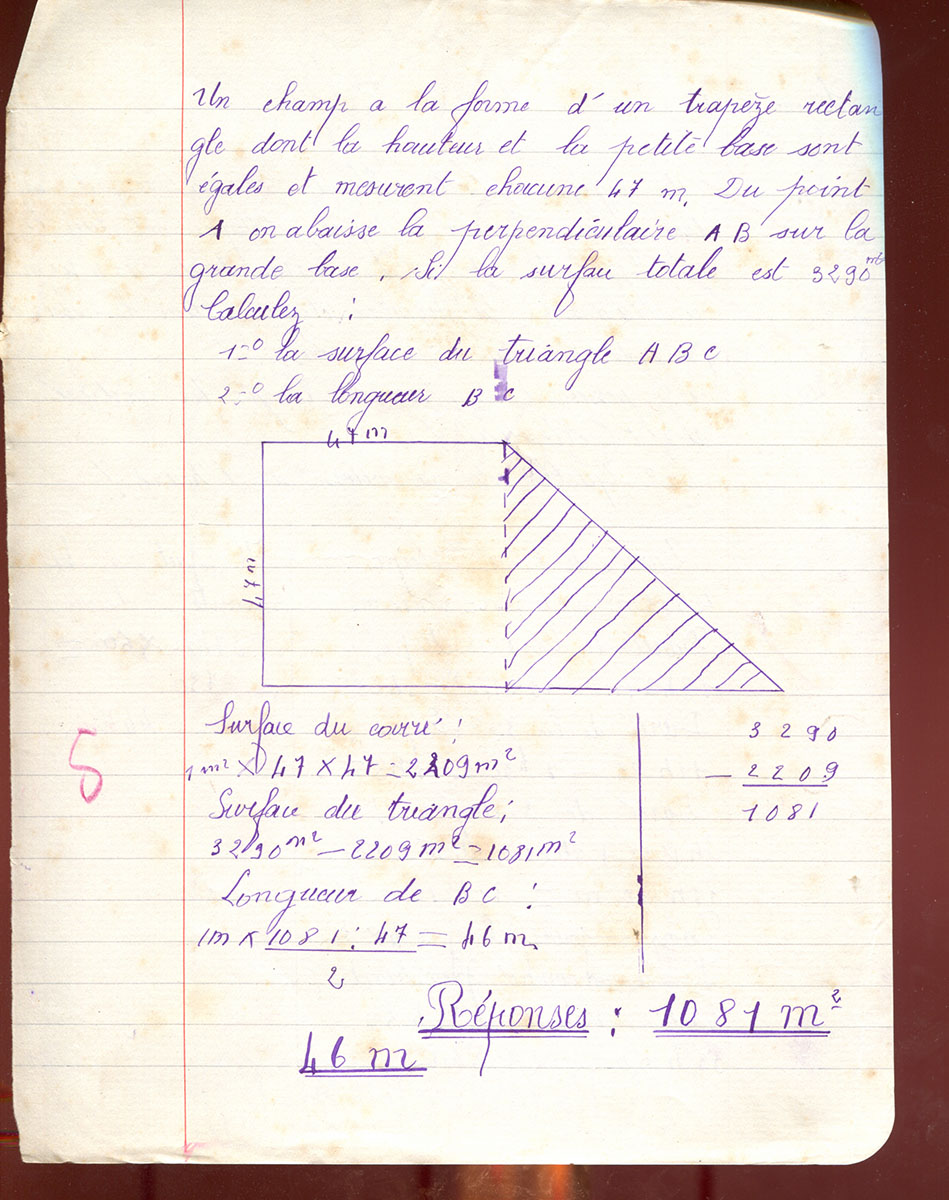 Un champ a la forme d'un trapèze rectan
gle dont la hauteur et la petite base sont
égales et mesurent chacune 47 m. Du point
A on abaisse la perpendiculaire AB sur la
grande base. Si la surfau totale est 3290 m²
Calculez :
1=° la surface du triangle ABC
2=° la longueur BC
47 m
47 m
Surface du carré :
1 m² × 47 × 47 = 2209 m²
3290
- 2209
1081
5
Surfau du triangle :
3290 m² - 2209 m² = 1081 m²
Longueur de BC :
1m × 1081 : 47 = 46 m
2
Réponses : 1081 m²
46 m